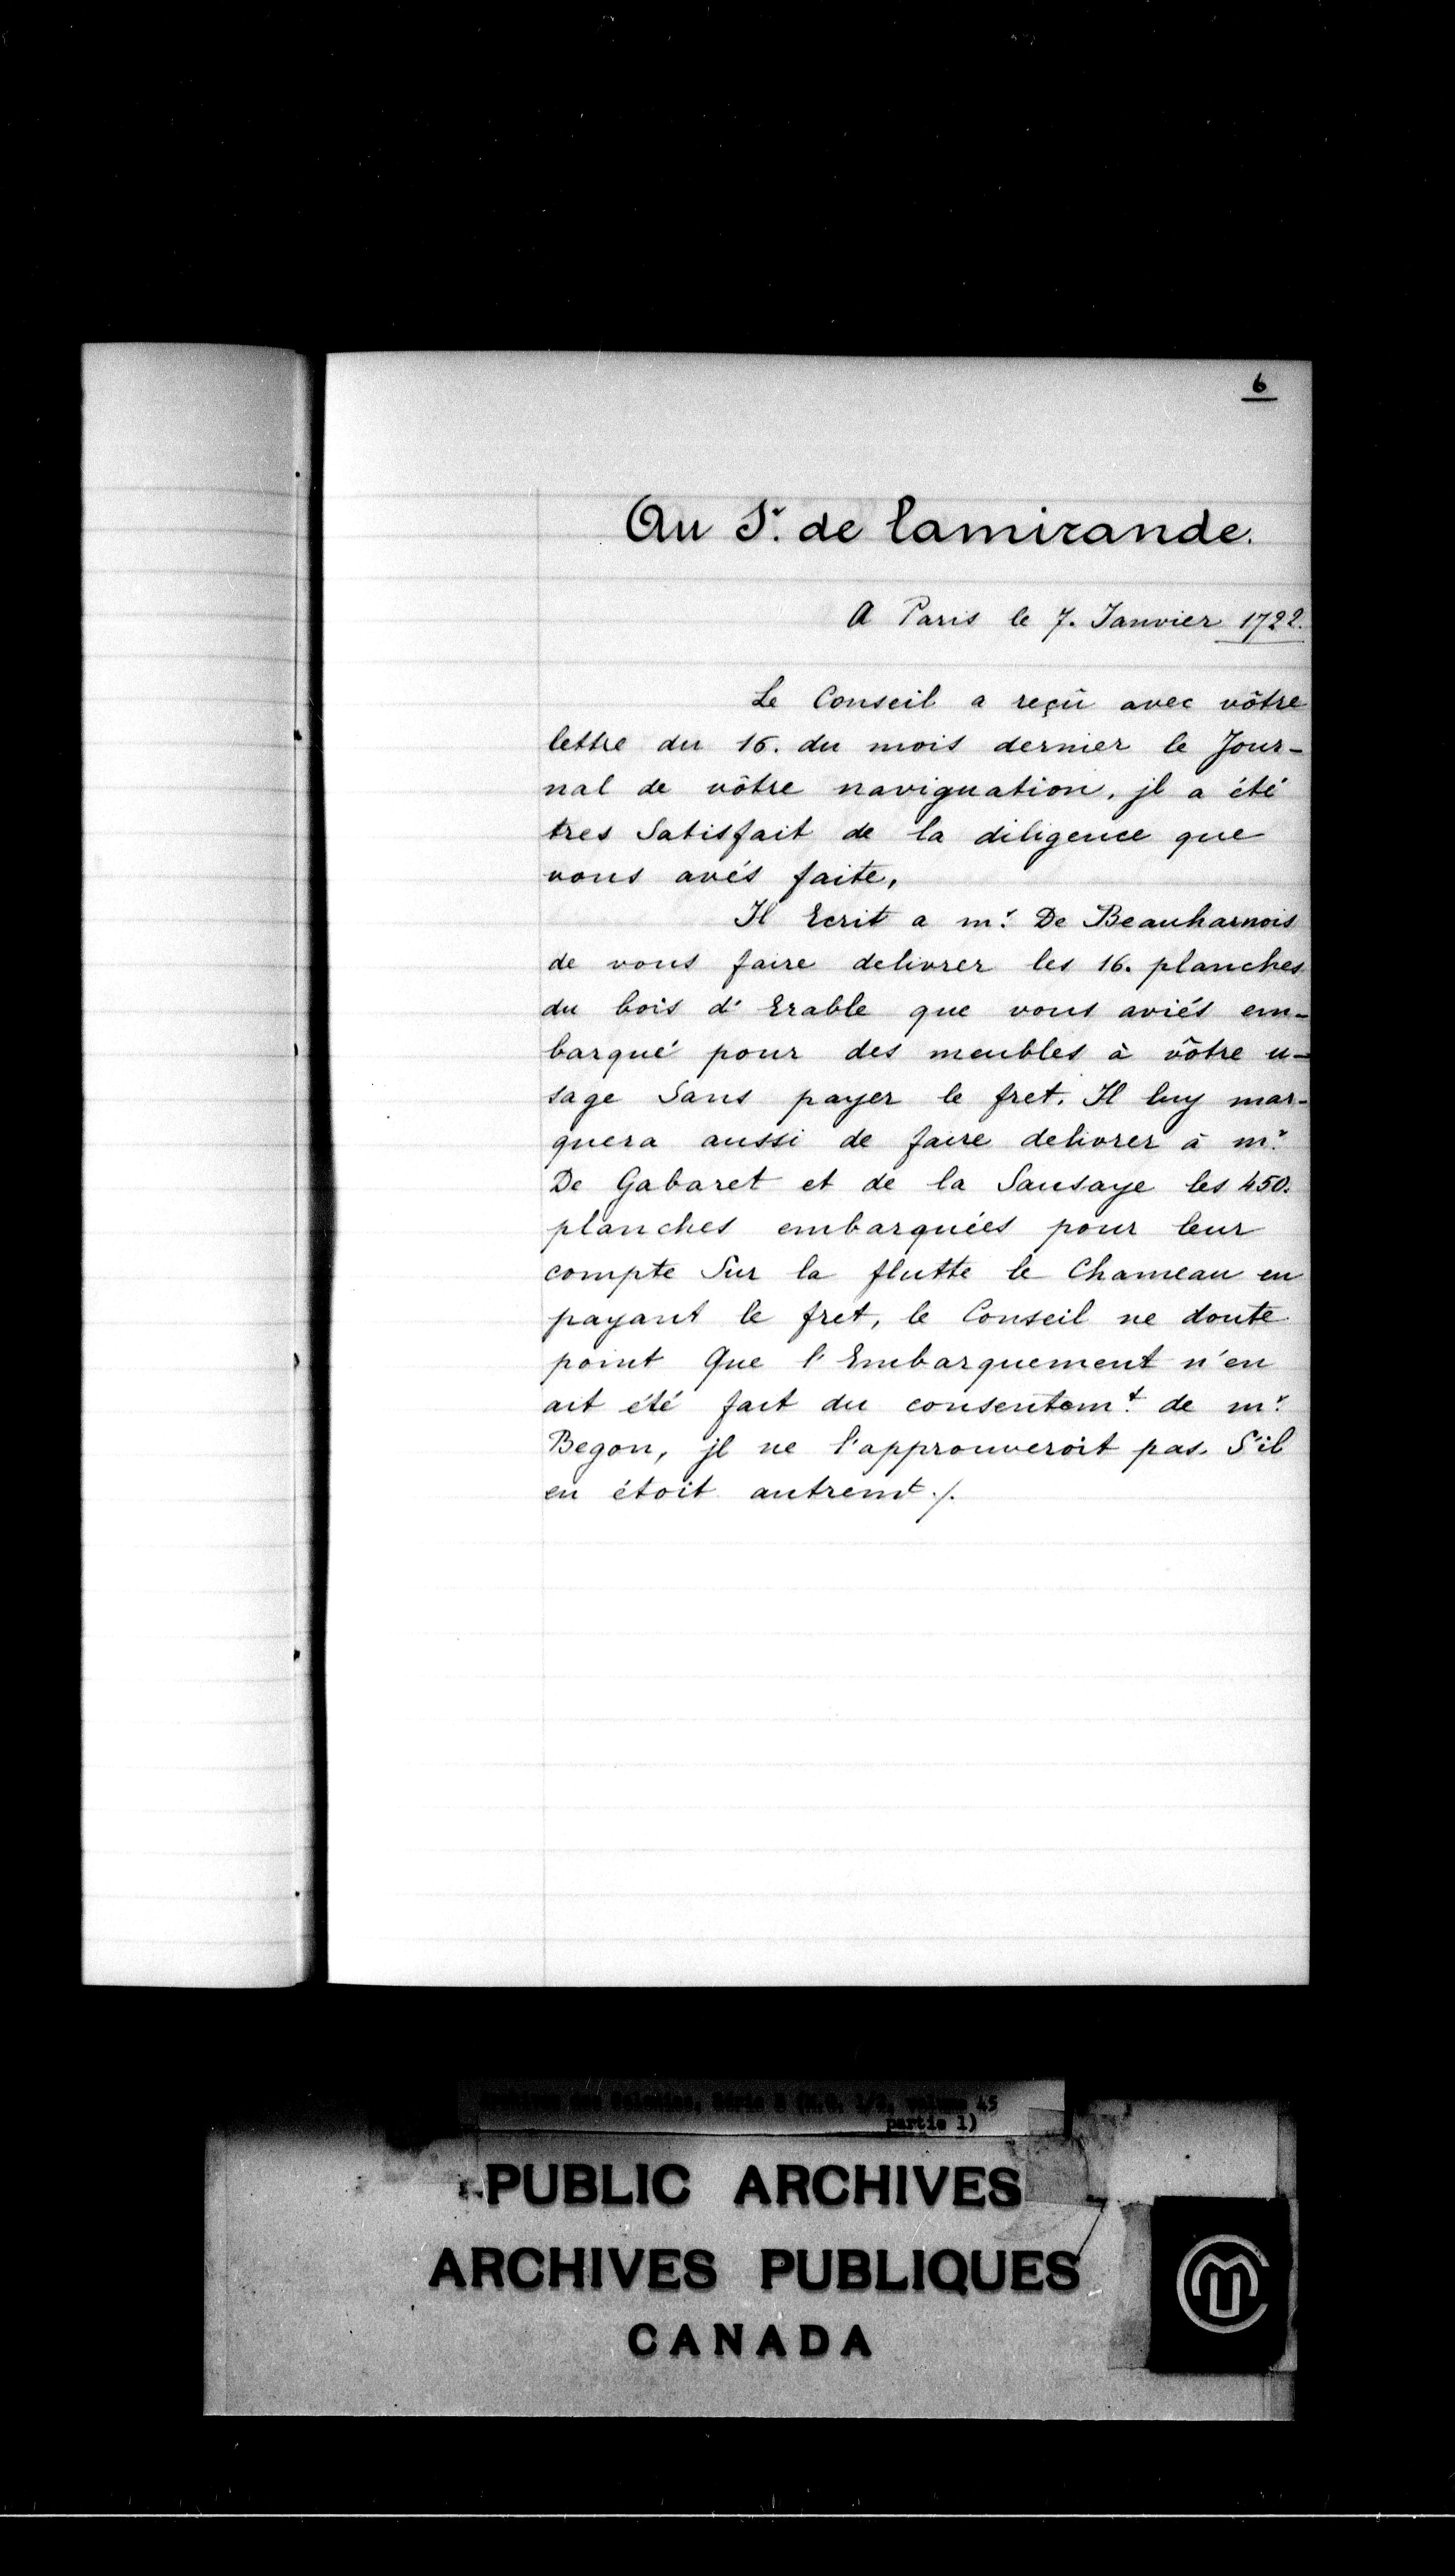 6
Au Sr. de Lamirande.
A Paris le 7. Janvier 1722.
Le Conseil a reçû avec vôtre
lettre du 16. du mois dernier le Jour-
nal de vôtre naviguation, jl a été
tres Satisfait de la diligence que
vous avés faite,
Il Ecrit a mr. De Beauharnois
de vous faire delivrer les 16. planches
du bois d'Erable que vous aviés em-
barqué pour des meubles à vôtre u-
sage Sans payer le fret. Il luy mar-
quera aussi de faire delivrer à mr.
De Gabaret et de la Sausaye les 450.
planches embarquées pour leur
compte Sur la flutte le Chameau en
payant le fret, le Conseil ne doute
point Que l'Embarquement n'en
ait été fait du consentemt. de mr.
Begon, jl ne l'approuveroit pas. S'il
en étoit autremt./.
Archives des Colonies, Série B (M.G. 1/2, volume 45
partie 1)
PUBLIC ARCHIVES
ARCHIVES PUBLIQUES
CANADA